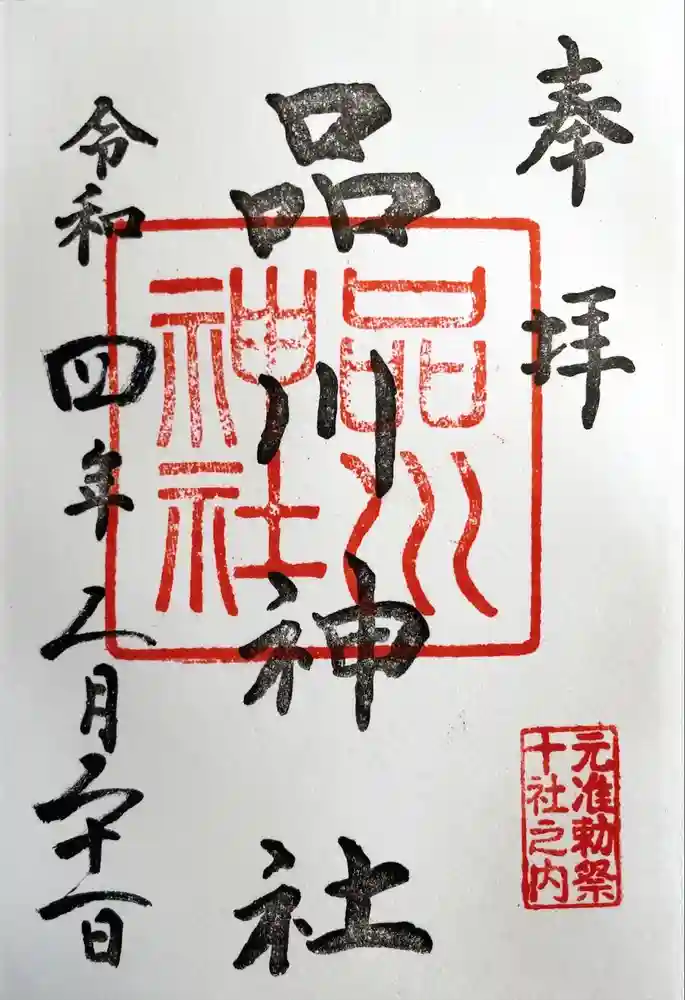 奉拝
元准勅祭
十社之内
品川神社
品川
神社
令和四年 月 十一日